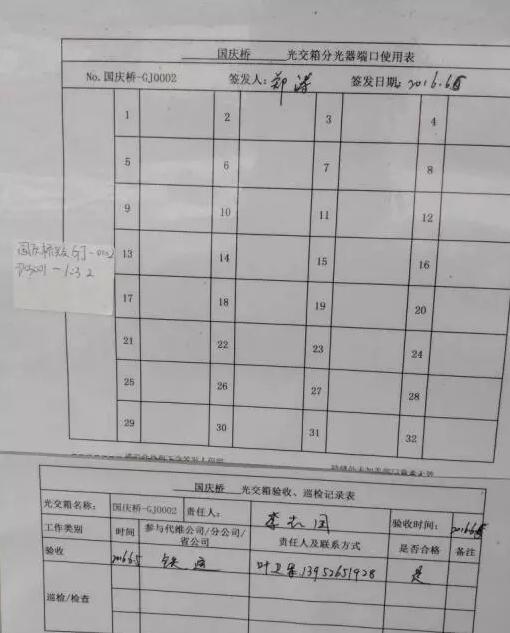 国庆桥 光交箱分光器端口使用表
No.国庆桥-GJ0002 签发人: 签发日期:
1 2 3 4
5 6 7 8
9 10 11 12
13 14 15 16
17 18 19 20
21 22 23 24
25 26 27 28
29 30 31 32
国庆桥 光交箱验收、巡检记录表
光交箱名称: 国庆桥-GJ0002 责任人: 验收时间:
工作类别 时间 参与代维公司/分公司/省公司 责任人及联系方式 是否合格 备注
验收 13952651928 是
巡检/检查